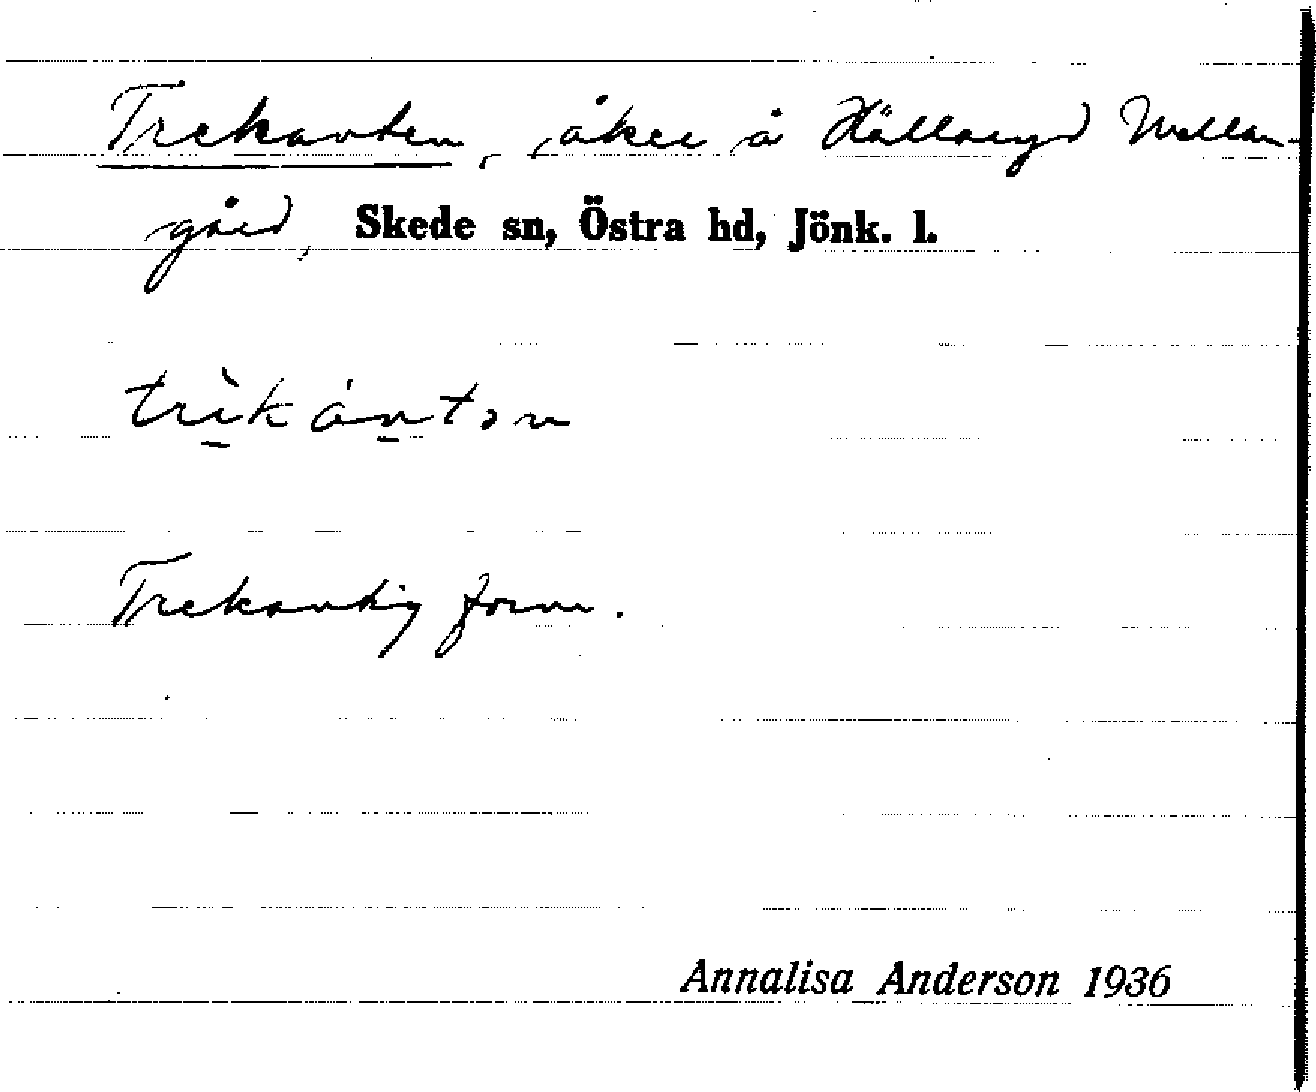 Trekanten, åker å Hällaryd Mellan-
gård, Skede sn, Östra hd, Jönk. l.
trìkánton
Trekantig form.
Annalisa Anderson 1936